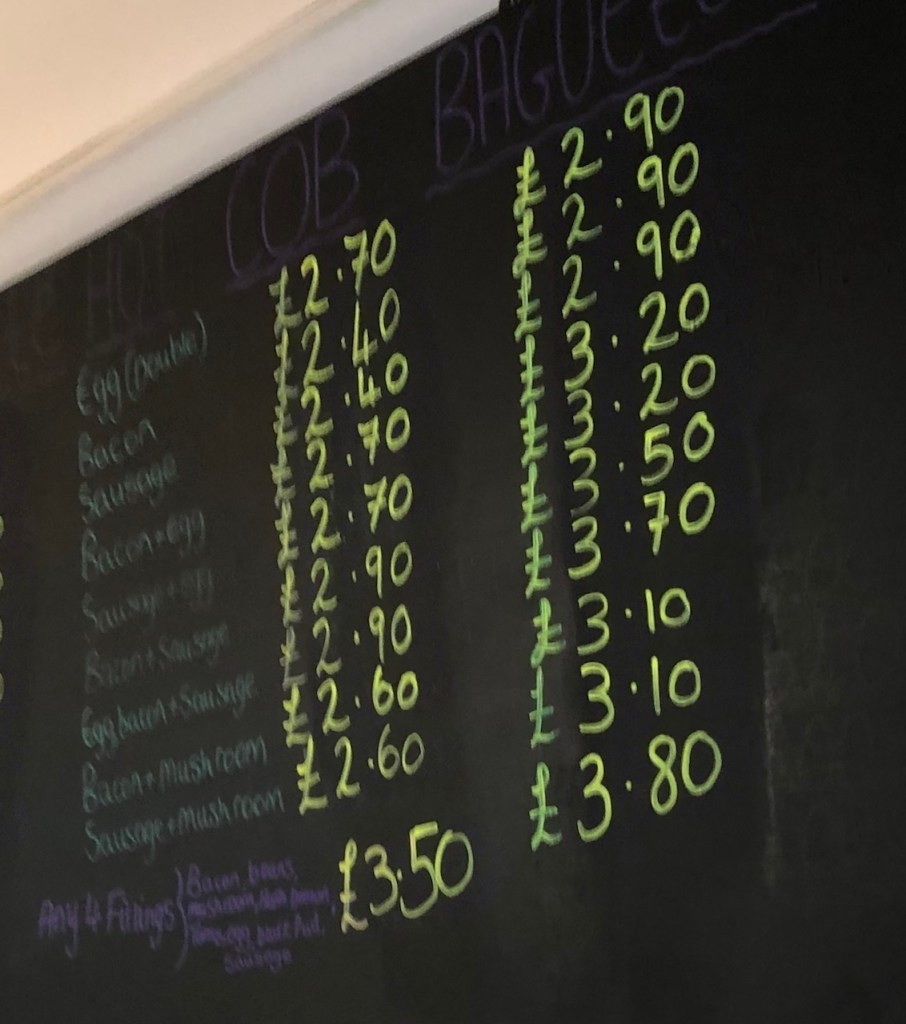 HOT COB BAGUETT
Egg (Double) £2.70 £2.90
Bacon £2.40 £2.90
Sausage £2.40 £2.90
Bacon + egg £2.70 £3.20
Sausage + egg £2.70 £3.20
Bacon + Sausage £2.90 £3.50
Egg bacon + Sausage £2.90 £3.70
Bacon + mushroom £2.60 £3.10
Sausage + mushroom £2.60 £3.10
Any 4 Fillings Bacon, beans, £3.50 £3.80
mushroom,
egg, black Pud,
Sausage